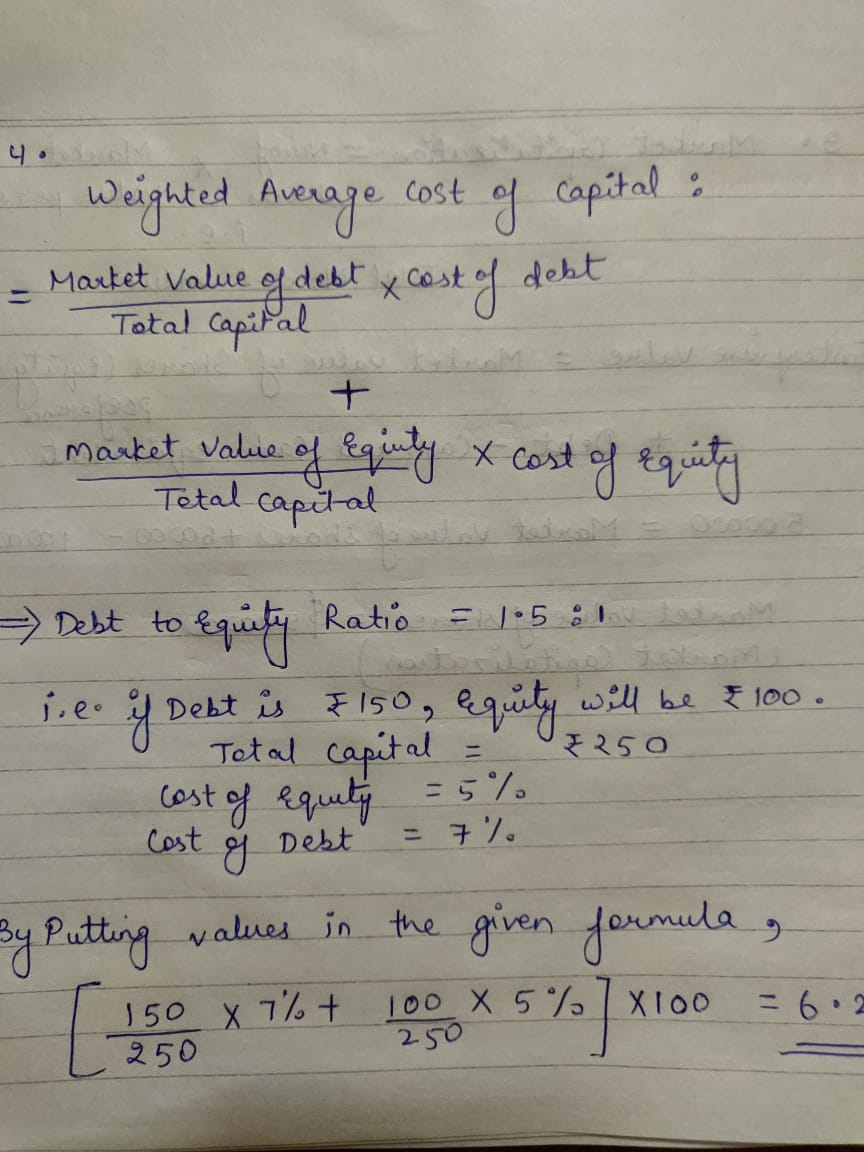 4.
Weighted Average Cost of Capital :
= Market Value of debt / Total Capital × Cost of debt
+
Market Value of Equity / Total Capital × Cost of Equity
⇒ Debt to Equity Ratio = 1.5 : 1
i.e. if Debt is ₹150, Equity will be ₹100.
Total Capital = ₹250
Cost of Equity = 5%
Cost of Debt = 7%
By Putting values in the given formula,
[ 150/250 × 7% + 100/250 × 5% ] × 100 = 6.2